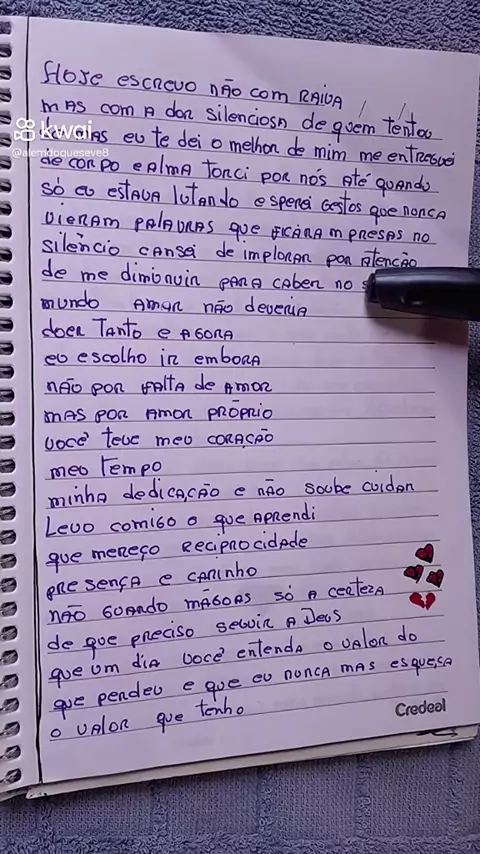 Hoje escrevo não com RAIVA
mas com A dor silenciosa de quem tentou
mas eu te dei o melhor de mim me entreguei
de corpo e Alma Torci por nós Até quando
só eu estava lutando e esperei gestos que nunca
vieram palavras que ficaram presas no
silêncio cansei de implorar por atenção
de me diminuir para caber no s
mundo Amar não deveria
doer Tanto e AGORA
eu escolho ir embora
não por falta de amor
mas por amor próprio
você teve meu coração
meu tempo
minha dedicação e não soube cuidar
Levo comigo o que Aprendi
que mereço Reciprocidade
presença e carinho
não guardo mágoas só a certeza
de que preciso seguir A Deus
que um dia você entenda o valor do
que perdeu e que eu nunca mas esqueça
o valor que tenho
Credeal
kwai
@alemdoqueseve8